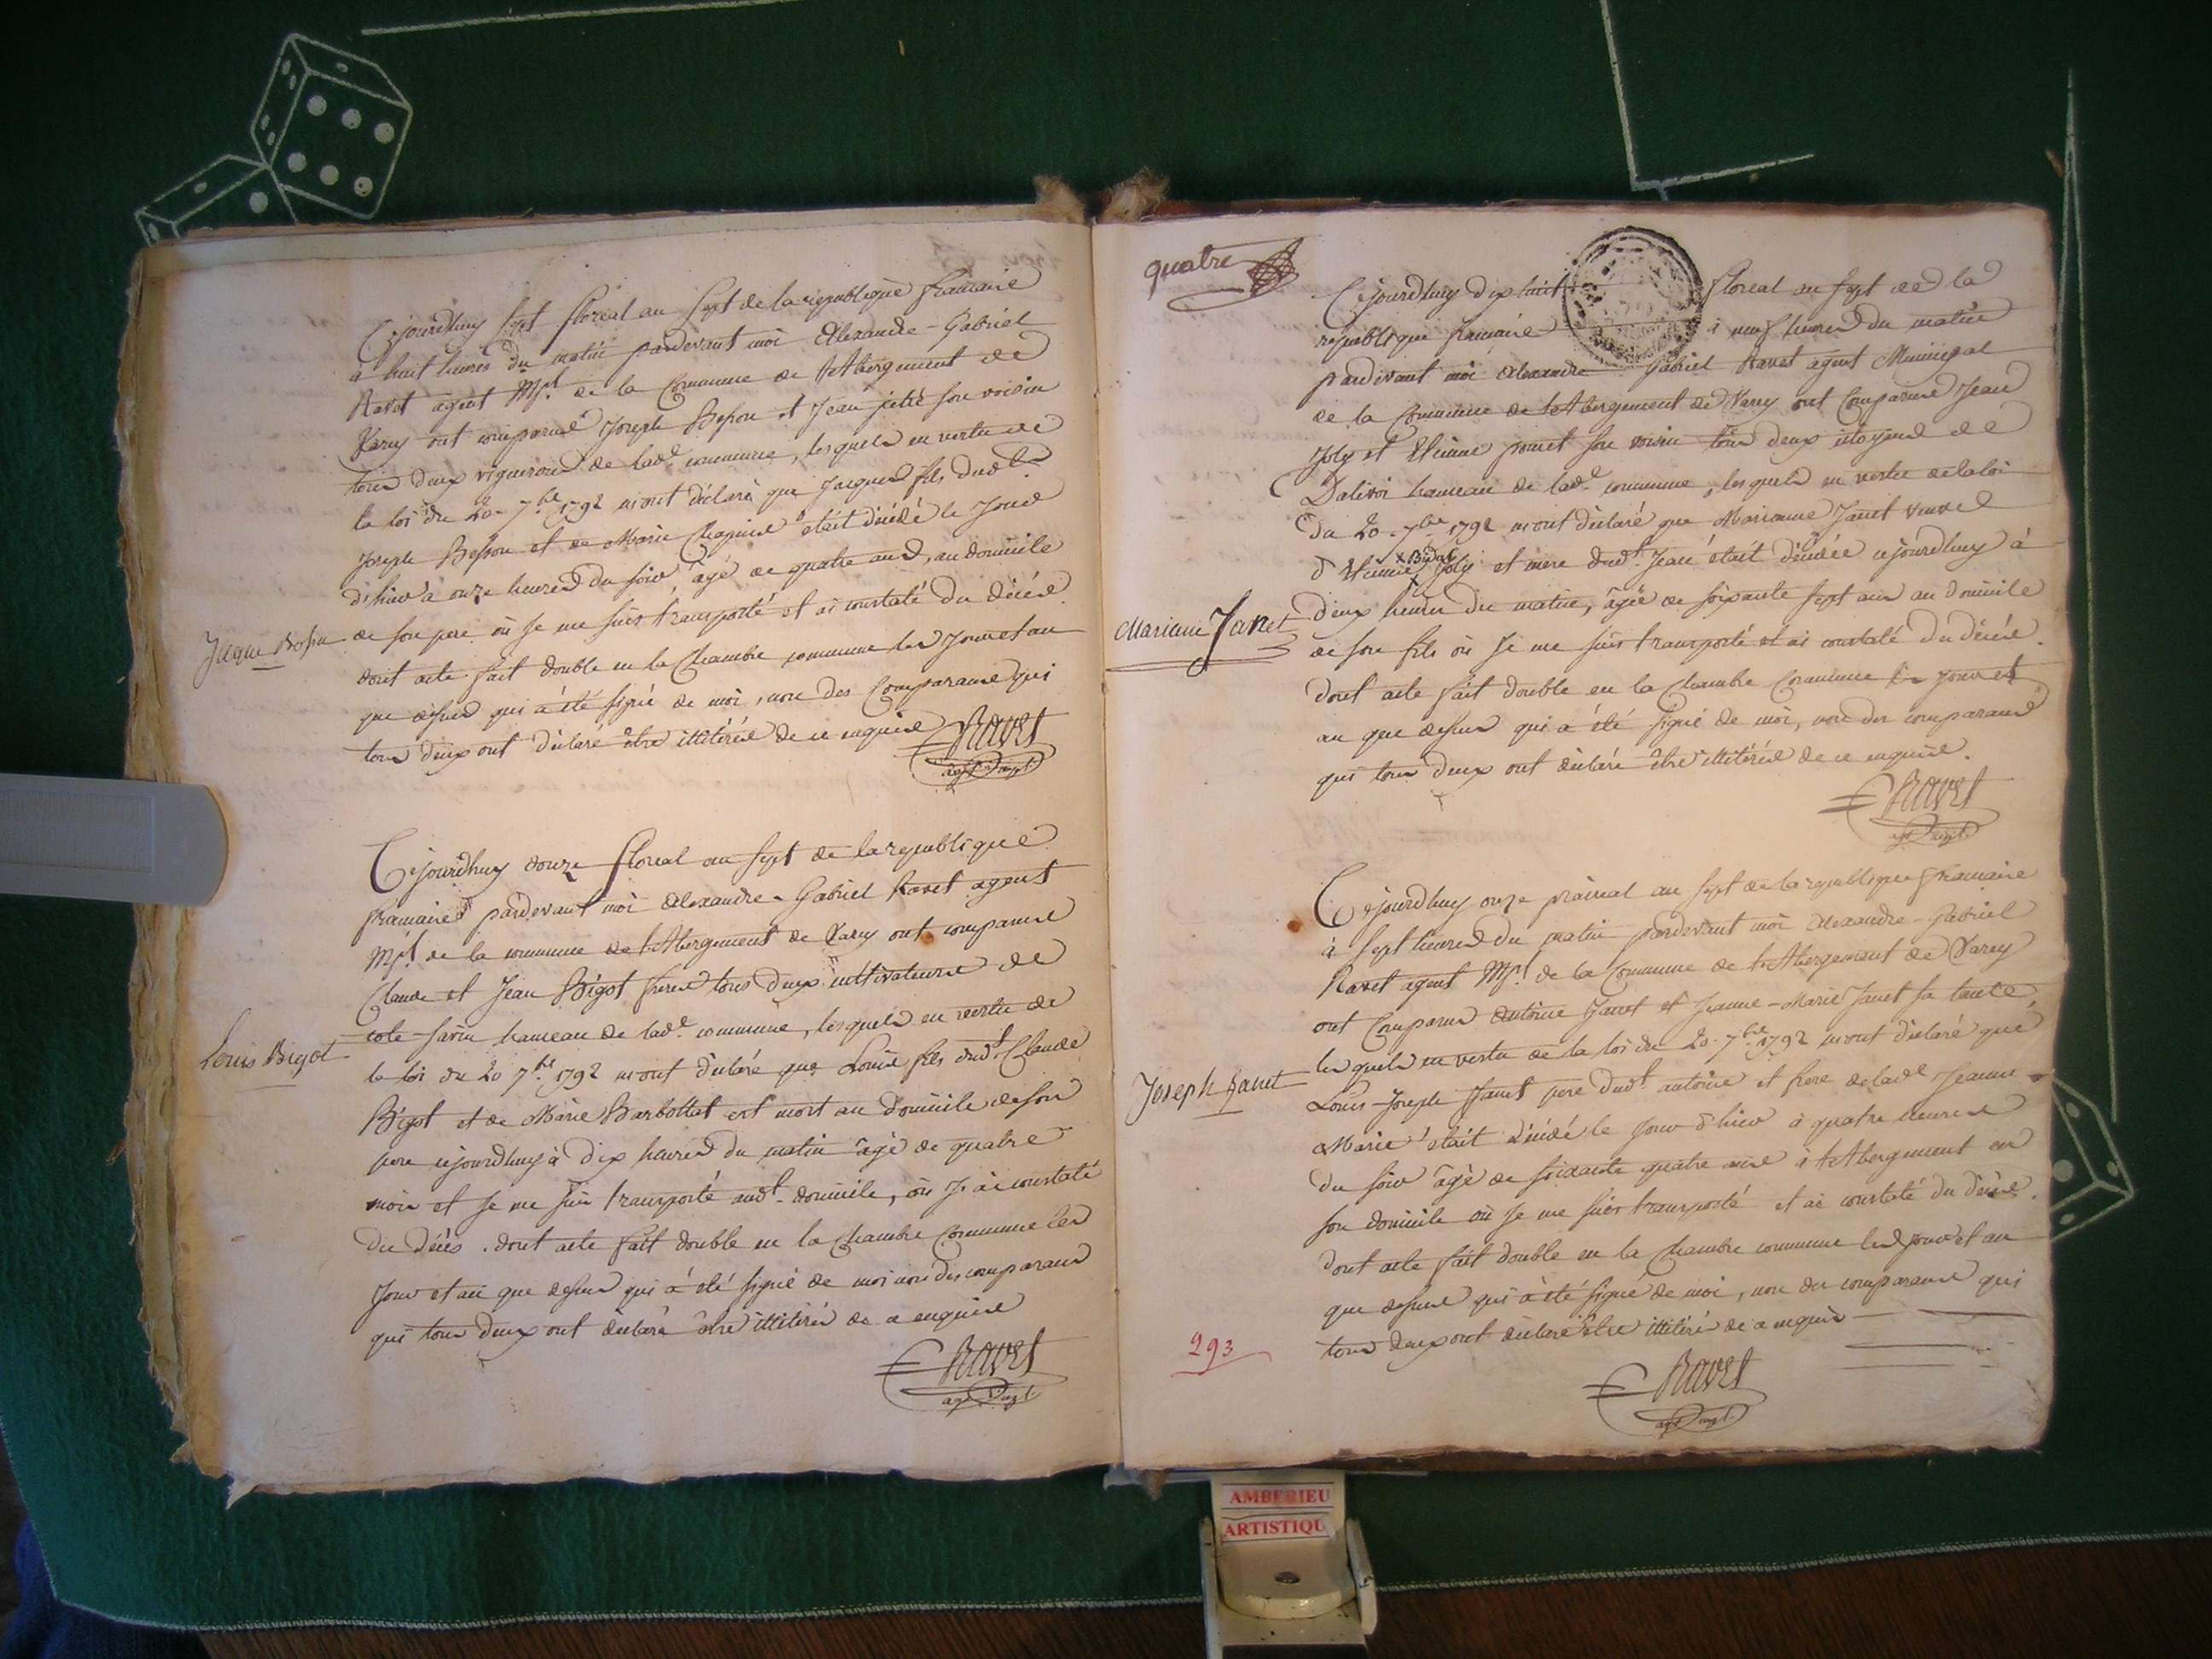 Cejourdhuy sept floreal an sept de la republique francaise
à huit heures du matin pardevant moi Alexandre-Gabriel
Ravet agent Mpl. de la Commune de l'Abergement de
Varey ont comparus Joseph Besson et Jean son voisin
tous deux vignerons de lade. commune, lesquels en vertu de
la loi du 20. 7bre. 1792 m'ont déclaré que Jacques fils dudt.
Joseph Besson et de Marie était décédé le Jour
d'hier à onze heures du soir, âgé de quatre ans, au domicile
Jaque Besson
de son pere où Je me suis transporté et ai constaté du décès.
dont acte fait double en la Chambre commune les Jour et an
que dessus qui à été signé de moi, non des Comparans qui
tous deux ont déclaré être illitérés de ce enquis
Ravet
agt. mpl.
Cejourdhuy douze floreal an sept de la republique
francaise pardevant moi Alexandre-Gabriel Ravet agent
Mpl. de la commune de l'Abergement de Varey ont comparus
Claude et Jean Bigot freres tous deux cultivateurs de
cote-savin hameau de lade. commune, lesquels en vertu de
Louis Bigot
la loi du 20 7bre. 1792 m'ont déclaré que Louis fils dudt. Claude
Bigot et de Marie Barbottet est mort au domicile de son
pere cejourdhuy à dix heures du matin âgé de quatre
mois et Je me suis transporté audt. domicile, où J'ai constaté
du décès. dont acte fait double en la Chambre Commune les
Jour et an que dessus qui à été signé de moi non des comparans
qui tous deux ont déclaré être illitérés de ce enquis
Ravet
agt. mpl.
quatre
Cejourdhuy dix huit floreal an sept de la
republique francaise à neuf heures du matin
pardevant moi Alexandre Gabriel Ravet agent Municipal
de la Commune de l'Abergement de Varey ont Comparus Jean
Joly et Etienne son voisin tous deux citoyens de
Dalivoi hameau de lade. commune, lesquels en vertu de la loi
du 20. 7bre. 1792 m'ont déclaré que Marianne Janet veuve
d'Etienne Joly et mere dudt. Jean était décédée cejourdhuy à
Mariane Janet
deux heures du matin, âgée de soixante sept ans au domicile
de son fils où Je me suis transporté et ai constaté du décès.
dont acte fait double en la Chambre Commune les Jour et
an que dessus qui à été signé de moi, non des comparans
qui tous deux ont déclaré être illitérés de ce enquis.
Ravet
agt. mpl.
Cejourdhuy onze prairial an sept de la republique francaise
à sept heures du matin pardevant moi Alexandre-Gabriel
Ravet agent Mpl. de la Commune de l'Abergement de Varey
ont Comparus Antoine Janet et Jeanne-Marie Janet sa tante,
lesquels en vertu de la loi du 20. 7bre. 1792 m'ont déclaré que
Joseph Janet
Louis-Joseph Janet pere dudt. antoine et frere de lade. Jeanne
Marie était décédé le Jour d'hier à quatre heures
du soir âgé de soixante quatre ans à l'Abergement en
son domicile où Je me suis transporté et ai constaté du décès.
dont acte fait double en la Chambre commune les Jour et an
que dessus qui à été signé de moi, non des comparans qui
tous deux ont déclaré être illitérés de ce enquis
293
Ravet
agt. mpl.
AMBERIEU
ARTISTIQU